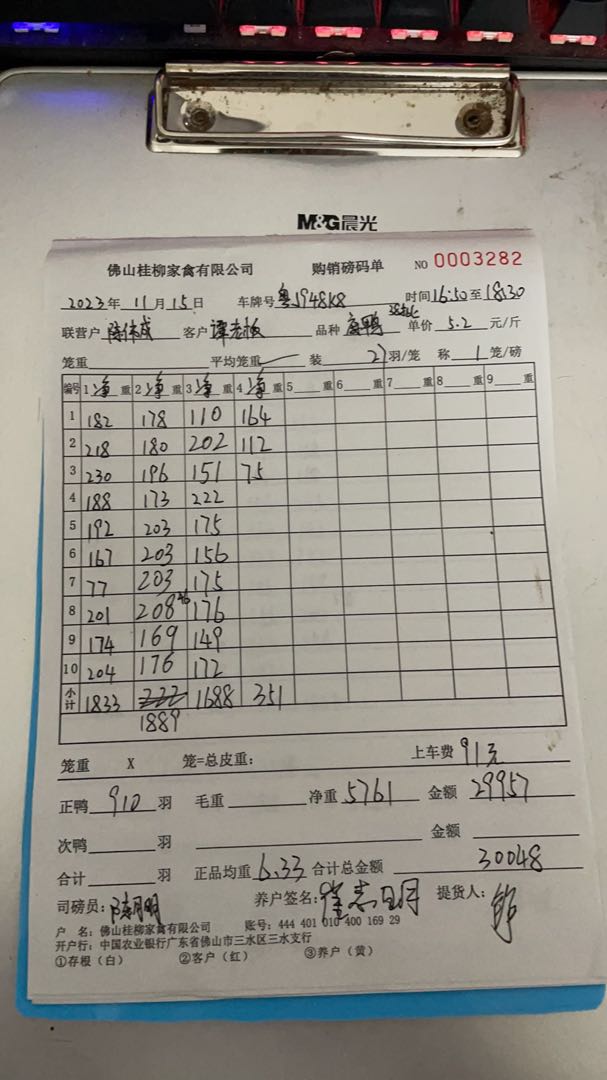 M&G晨光
佛山桂柳家禽有限公司 购销磅码单 NO 0003282
2023年 11月 15日 车牌号 粤J948K8 时间 16:50 至 18:30
联营户 客户 谭老板 品种 鸭 单价 5.2 元/斤
笼重 平均笼重 装 21 羽/笼 称 1 笼/磅
编号 1 净 重 2 净 重 3 净 重 4 净 重 5 重 6 重 7 重 8 重 9 重
1 182 178 110 164
2 218 180 202 112
3 230 196 151 75
4 188 173 222
5 192 203 175
6 167 203 156
7 77 203 175
8 201 208 176
9 174 169 149
10 204 176 172
小计 1833 1688 351
1889
笼重 X 笼=总皮重: 上车费 91元
正鸭 910 羽 毛重 净重 5761 金额 29957
次鸭 羽 金额
合计 羽 正品均重 6.33 合计总金额 30048
司磅员: 陆月明 养户签名: 提货人:
户 名: 佛山桂柳家禽有限公司 账号: 444 401 010 400 169 29
开户行: 中国农业银行广东省佛山市三水区三水支行
①存根（白） ②客户（红） ③养户（黄）